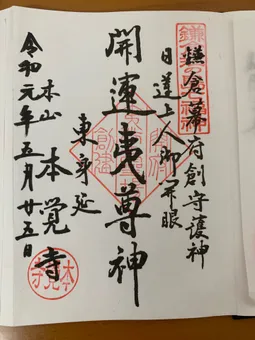 鎌倉幕府創守護神
日道上人御開眼
開運夷尊神
東身延
本山 本覺寺
令和元年五月廿五日